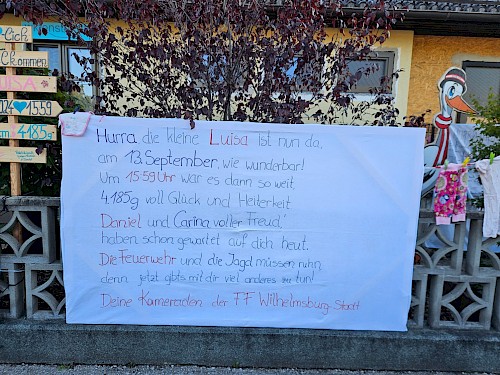 Hurra die kleine Luisa ist nun da,
am 13. September, wie wunderbar!
Um 15:59 Uhr war es dann so weit,
4.185g voll Glück und Heiterkeit.
Daniel und Carina voller Freud,
haben schon gewartet auf dich heut.
Die Feuerwehr und die Jagd müssen ruhn,
denn jetzt gibts mit dir viel anderes zu tun!
Deine Kameraden der FF Wilhelmsburg Stadt
LUISA
1559
4185g